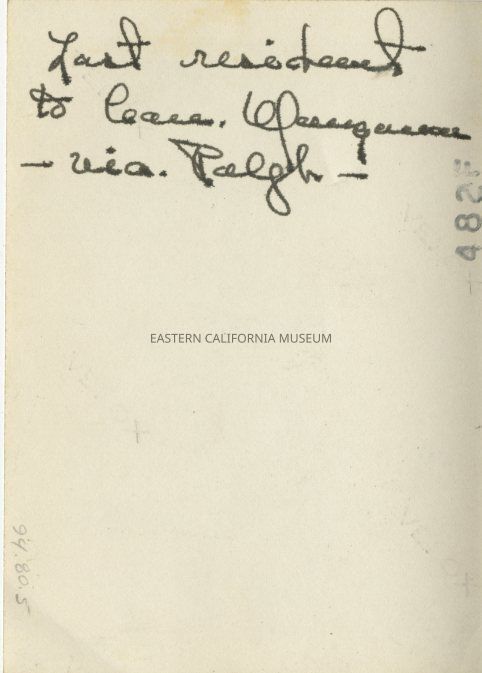 Last resident
to leave. Manzanar
- via. Ralph -
482F
EASTERN CALIFORNIA MUSEUM
94.80.5